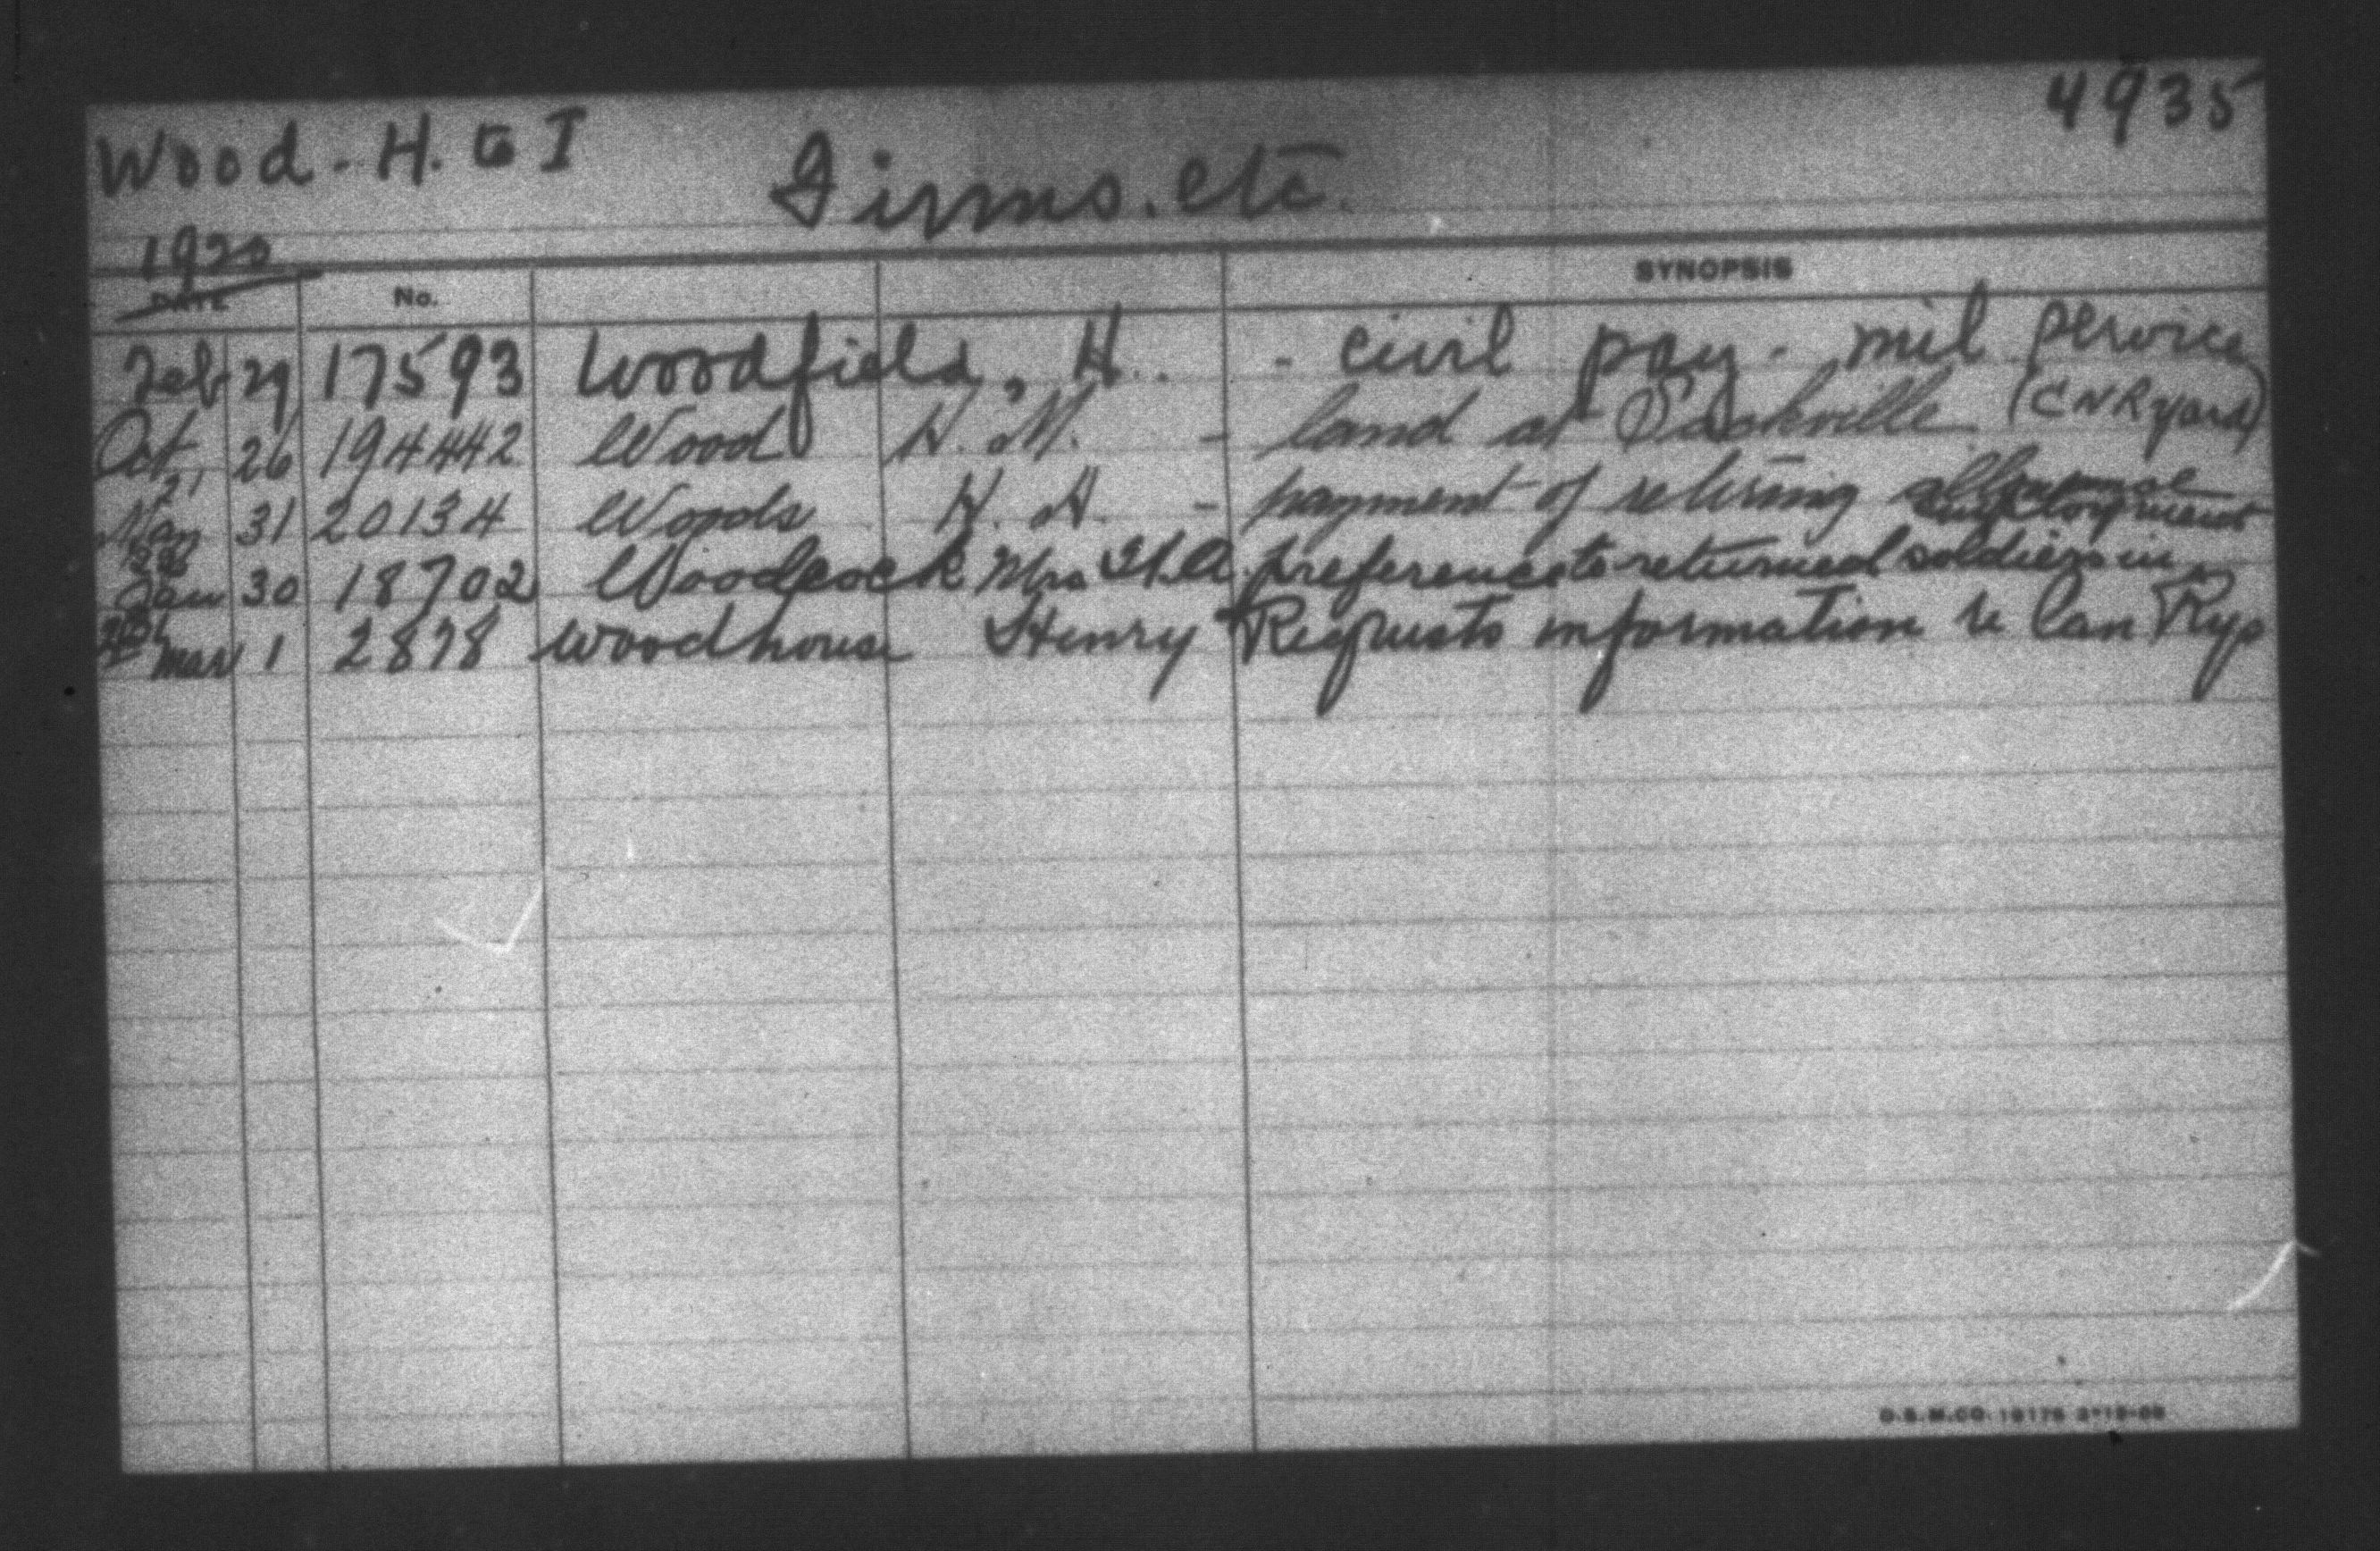 4935
Wood - H. to I
Firms. etc.
1920
DATE No. SYNOPSIS
Feb 29 17593 Woodfield, H. - civil pay - mil service
Oct 26 194442 Wood H. M. - land at Sackville (CNR yard)
21
Mar 31 20134 Woods H. H. - payment of retiring allowance
employment
Jan 30 18702 Woodcock Mrs H.A. preference to returned soldiers in
Mar 1 2878 Woodhouse Henry - Requests information re Can Rys
O.S.M.CO. 19176